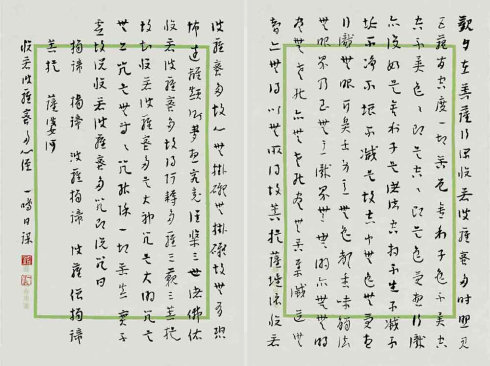 觀自在菩薩行深般若波羅蜜多時照見
五蘊皆空度一切苦厄舍利子色不異空
空不異色色即是空空即是色受想行識
亦復如是舍利子是諸法空相不生不滅不
垢不淨不增不減是故空中無色無受想
行識無眼耳鼻舌身意無色聲香味觸法
無眼界乃至無意識界無無明亦無無明
盡乃至無老死亦無老死盡無苦集滅道無
智亦無得以無所得故菩提薩埵依般若
波羅蜜多故心無罣礙無罣礙故無有恐
怖遠離顛倒夢想究竟涅槃三世諸佛依
般若波羅蜜多故得阿耨多羅三藐三菩提
故知般若波羅蜜多是大神咒是大明咒是
無上咒是無等等咒能除一切苦真實不
虛故說般若波羅蜜多咒即說咒曰
揭諦 揭諦 波羅揭諦 波羅僧揭諦
菩提 薩婆訶
般若波羅蜜多心經 一鳴日課